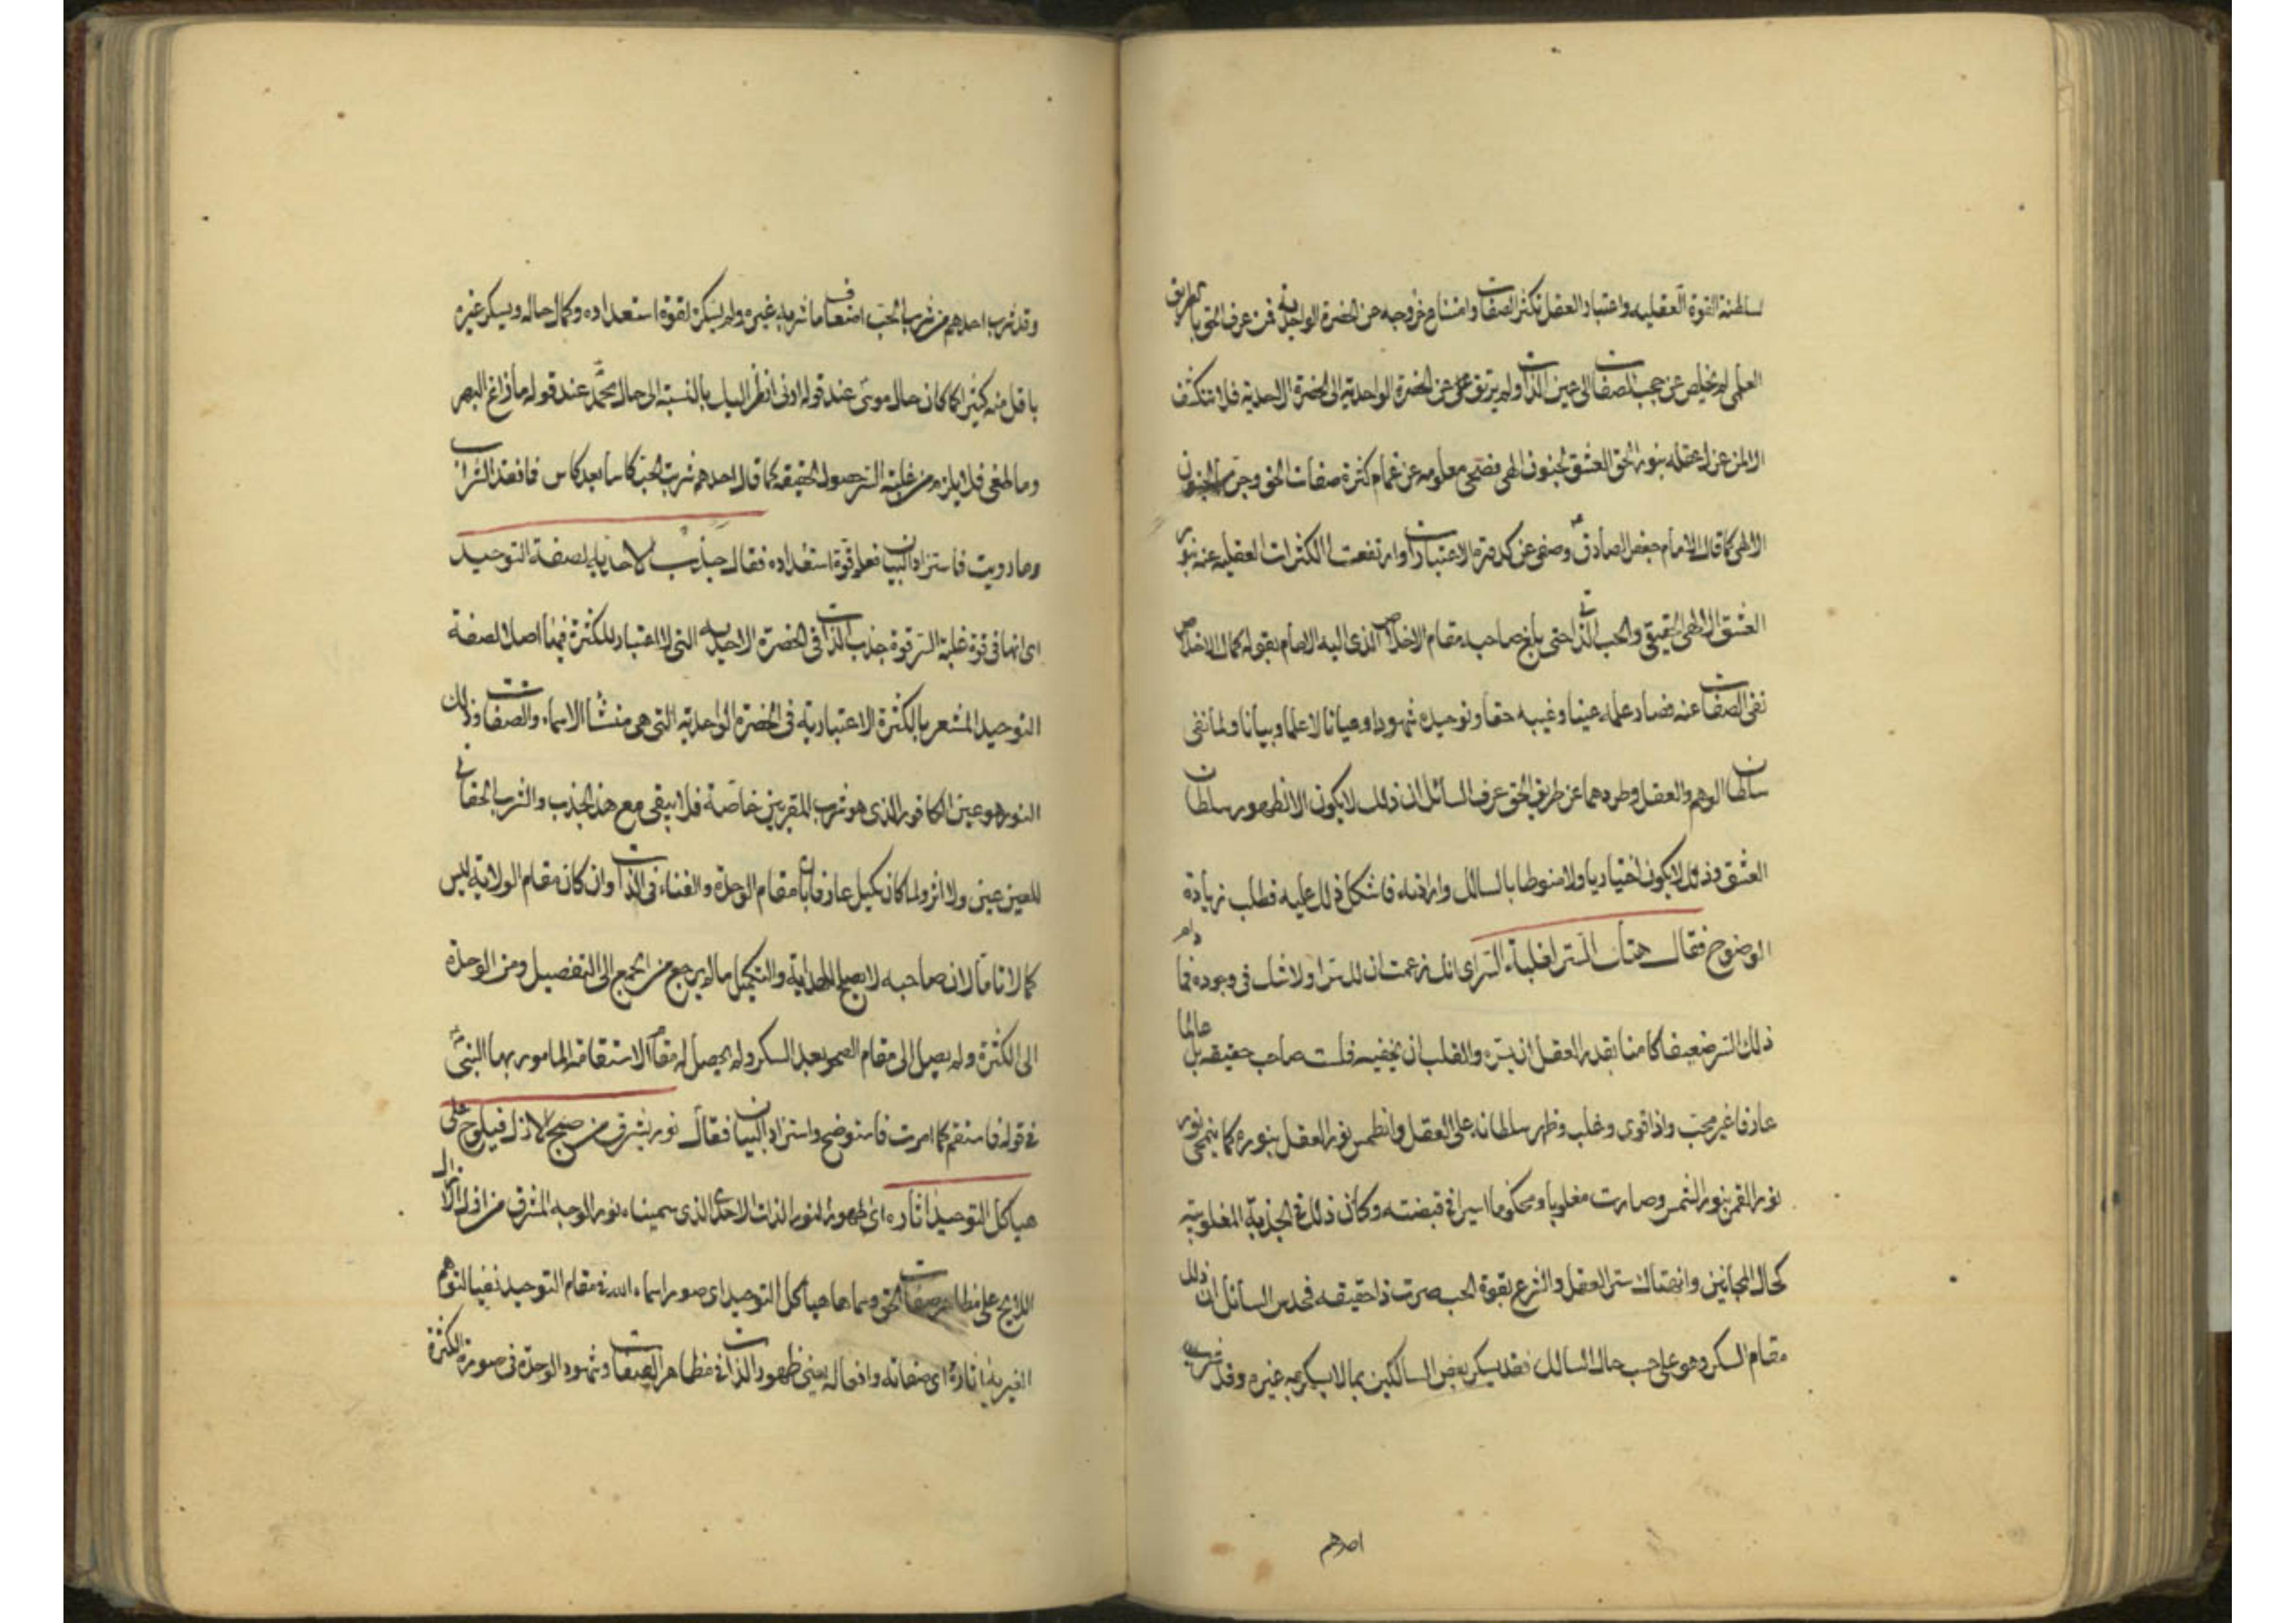 لسلطنة القوة العقليه واعتبار العقل تكثر الصفات وامتناع خروجه عن الحضرة الواحدية فمن عرف الحق بالطريق
العلمى لم يخلص عن حجب الصفات الى عين الذات ولم يرتق عن الحضرة الواحدية الى الحضرة الاحدية فلا تنكشف
الا لمن عزل عقله بنور الحق العشق بجنون الهى فصحى معلومه عن غمام كثرة صفات الحق وجن الجنون
الالهى كما قال الامام جعفر الصادق وصفى عن كدرة الاعتبارات وارتفعت الكثرات العقليه عنه بنور
العشق الالهى الحقيقى والحب الذاتى حتى بلغ صاحبه مقام الاخلاص الذى اليه الامام بقوله كمال الاخلاص
نفى الصفات عنه فصار علمه عينا وغيبه حقا وتوحيده شهودا وعيانا لا علما وبيانا ولما نفى
سلطان الوهم والعقل وطردهما عن طريق الحق عرف السائل ان ذلك لا يكون الا بظهور سلطان
العشق وذلك لا يكون اختياريا ولا منوطا بالسائل وارادته فاشكل ذلك عليه فطلب زيادة
الوضوح فقال هتك الستر لغلبة السر اى انك زعمت ان لك سرا ولا شك فى وجوده فما دام
ذلك السر ضعيفا كامنا يقدر العقل ان يستره والقلب ان يخفيه فلست صاحب حقيقه بل عالما
عارفا غير محب واذا قوى وغلب وظهر سلطانه على العقل وانطمس نور العقل بنوره كما ينمحى نور
نور القمر بنور الشمس وصارت مغلوبا ومحكوما اسيرا فى قبضته وكان ذلك فى الجذبة المغلوبية
كحال المجانين وانهتاك ستر العقل والشرع بقوة الحب صرت ذا حقيقه فحدس السائل ان ذلك
مقام السكر وهو على حسب حال السالك فقد يسكر بعض السالكين بما لا يسكر به غيره وقد شرب
احدهم
وقد شرب احدهم من شراب الحب اضعاف ما شربه غيره ولم يسكر لقوة استعداده وكمال حاله ويسكر غيره
باقل منه كثيرا كما كان حال موسى عند قوله ارنى انظر اليك بالنسبة الى حال محمد عند قوله ما زاغ البصر
وما طغى فلا يلزم من غلبة السر حصول الحقيقه كما قال احدهم شربت الحب كاسا بعد كاس فما نفد الشراب
وما رويت فاستزاد البيان فعلم قوة استعداده فقال جذب الاحدية لصفة التوحيد
اى انها فى قوة غلبة السر قوة جذب الذات فى الحضرة الاحدية التى لا اعتبار للكثرة فيها اصلا لصفة
التوحيد المشعر بالكثرة الاعتبارية فى الحضرة الواحدية التى هى منشأ الاسماء والصفات وذلك
النور هو عين الكافور الذى هو شرب المقربين خاصة فلا يبقى مع هذا الجذب والشرب الحقانى
للعين عين ولا اثر ولما كان كميل عارفا بان مقام الوحدة والفناء فى الذات وان كان مقام الولاية ليس
كمالا تاما لان صاحبه لا يصلح للهداية والتكميل ما لم يرجع من الجمع الى التفصيل ومن الوحدة
الى الكثرة ولم يصل الى مقام الصحو بعد السكر ولم يحصل له مقام الاستقامة المامور بها النبى
فى قوله فاستقم كما امرت فاستوضح واستزاد البيان فقال نور يشرق من صبح الازل فيلوح على
هياكل التوحيد اثاره اى ظهور نور الذات الاحدى الذى سميناه نور الوجه المشرق من افق الازل
اللايح على مظاهر صفات الحق وسماها هياكل التوحيد اى صور اسماء الله فى مقام التوحيد نفيا لتوهم
الغيرية اثاره اى صفاته وافعاله يعنى ظهور الذات فى مظاهر الصفات وشهود الوحدة فى صورة الكثرة